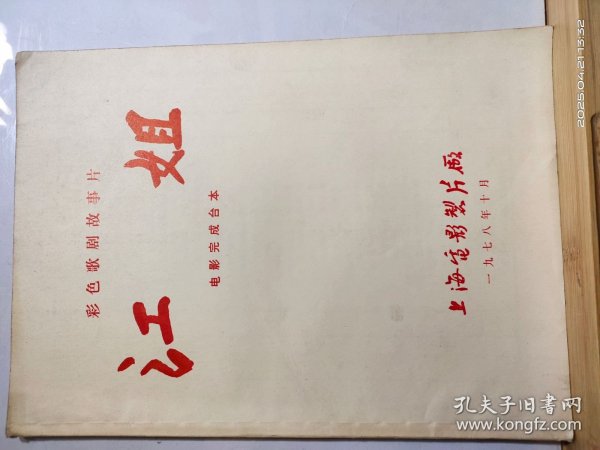 彩色歌剧故事片
江姐
电影完成台本
上海電影製片厰
一九七八年十月
2025.04.21 13:32
孔夫子旧书网
www.kongfz.com